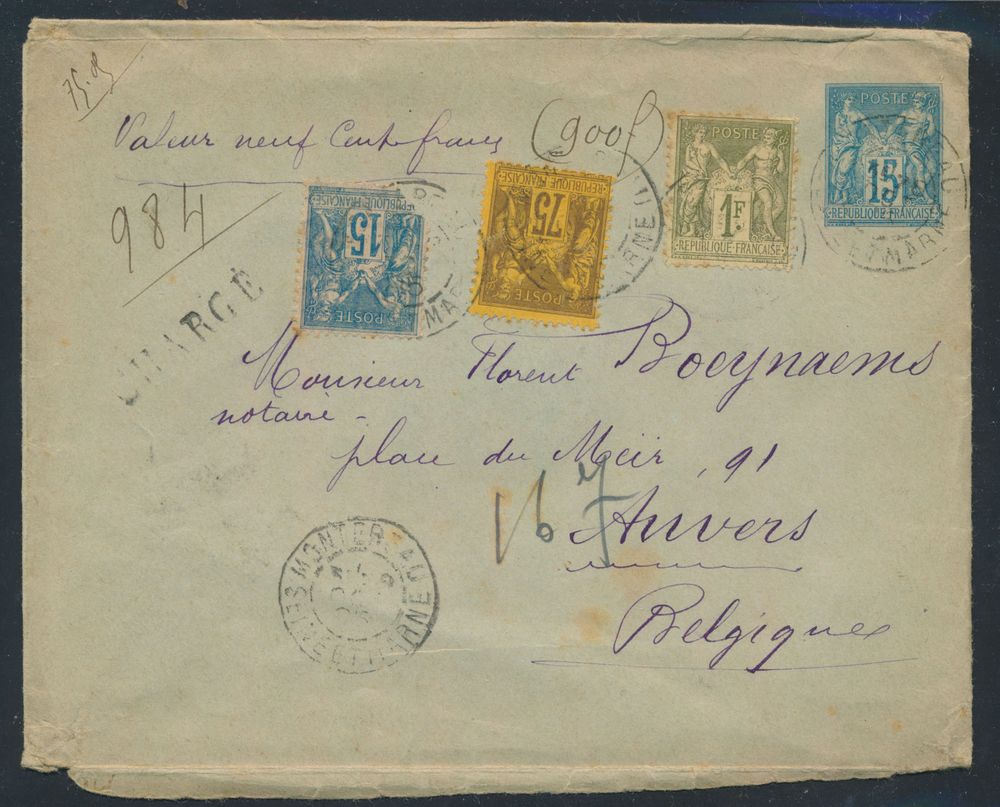 75.05
Valeur neuf Cents francs (900f)
984
CHARGÉ
POSTE
15
REPUBLIQUE FRANÇAISE
POSTE
75
REPUBLIQUE FRANÇAISE
POSTE
1F.
REPUBLIQUE FRANÇAISE
POSTE
15
REPUBLIQUE FRANÇAISE
Monsieur Florent Boeynaems
notaire
place du Meir, 91
Anvers
Belgique
16 7
MONTEREAU
SEINE ET MARNE